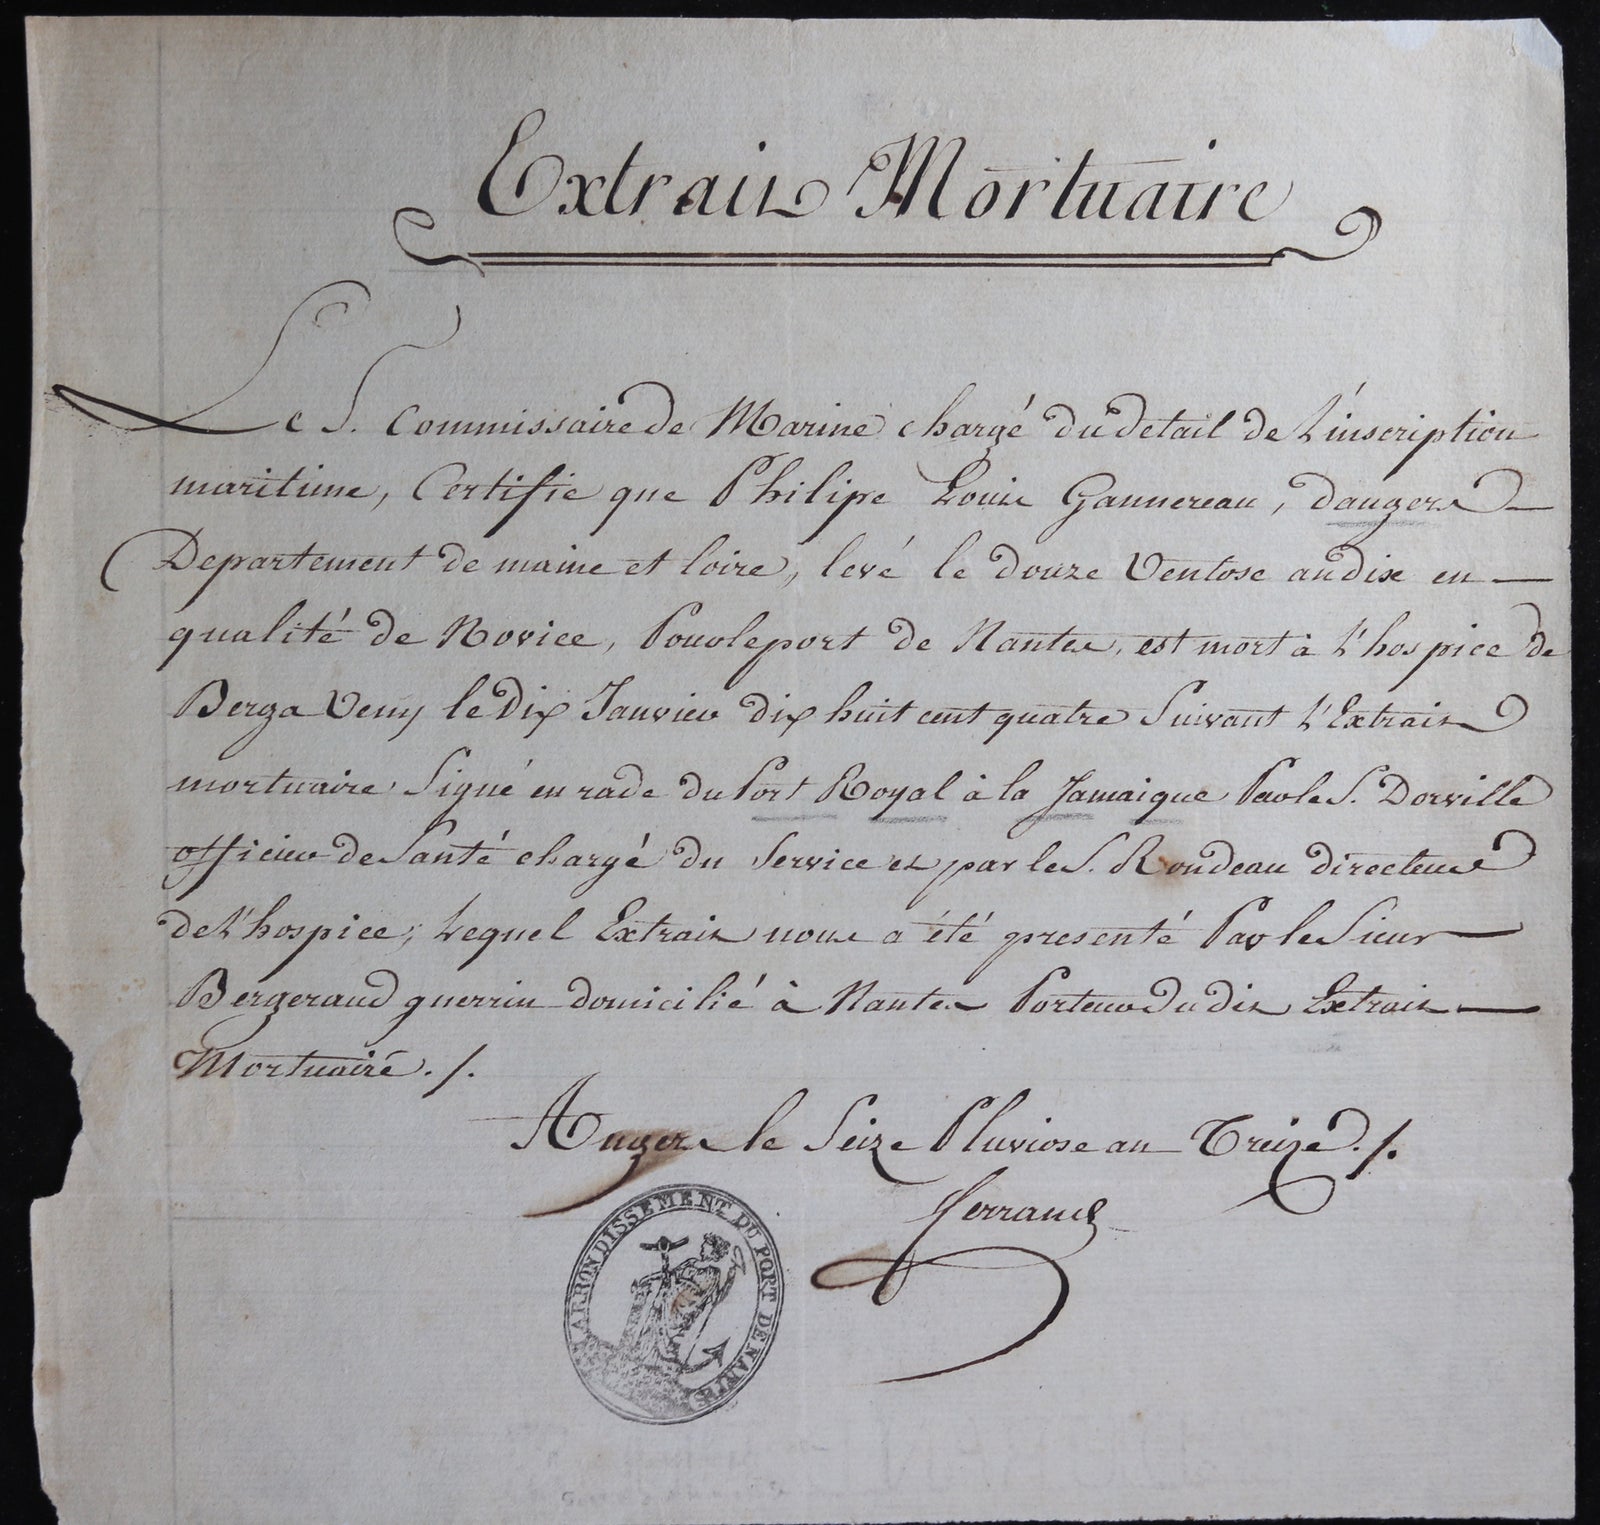 Extrait Mortuaire
Le S. Commissaire de Marine chargé du detail de L'inscription
maritime, Certifie que Philipe Louis Gannereau, dangers
Departement de maine et loire, levé le douze Ventose an dix en
qualité de Novice, Pour le port de Nantes, est mort à L'hospice de
Berga Veny le Dix Janvier dix huit cent quatre Suivant L'Extrait
mortuaire Signé en rade du Port Royal à la Jamaique Par le S. Dorville
officier de Santé chargé du Service et par le S. Rondeau directeur
de L'hospice; Lequel Extrait nous a été presenté Par le Sieur
Bergeraud guerrin domicilié à Nantes Porteur du dit Extrait
Mortuaire ./.
Angers le Seize Pluviose an Treize ./.
Ferrand
ARRONDISSEMENT DU PORT DE NANTES